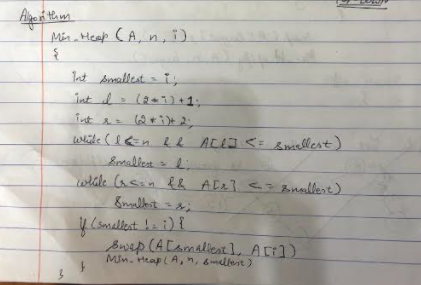 Algorithm
Min_Heap (A, n, i)
{
int smallest = i;
int l = (2*i)+1;
int r = (2*i)+2;
while (l<=n && A[l] <= smallest)
smallest = l;
while (r<=n && A[r] <= smallest)
smallest = r;
if (smallest != i) {
swap (A[smallest], A[i])
Min_Heap (A, n, smallest)
} }